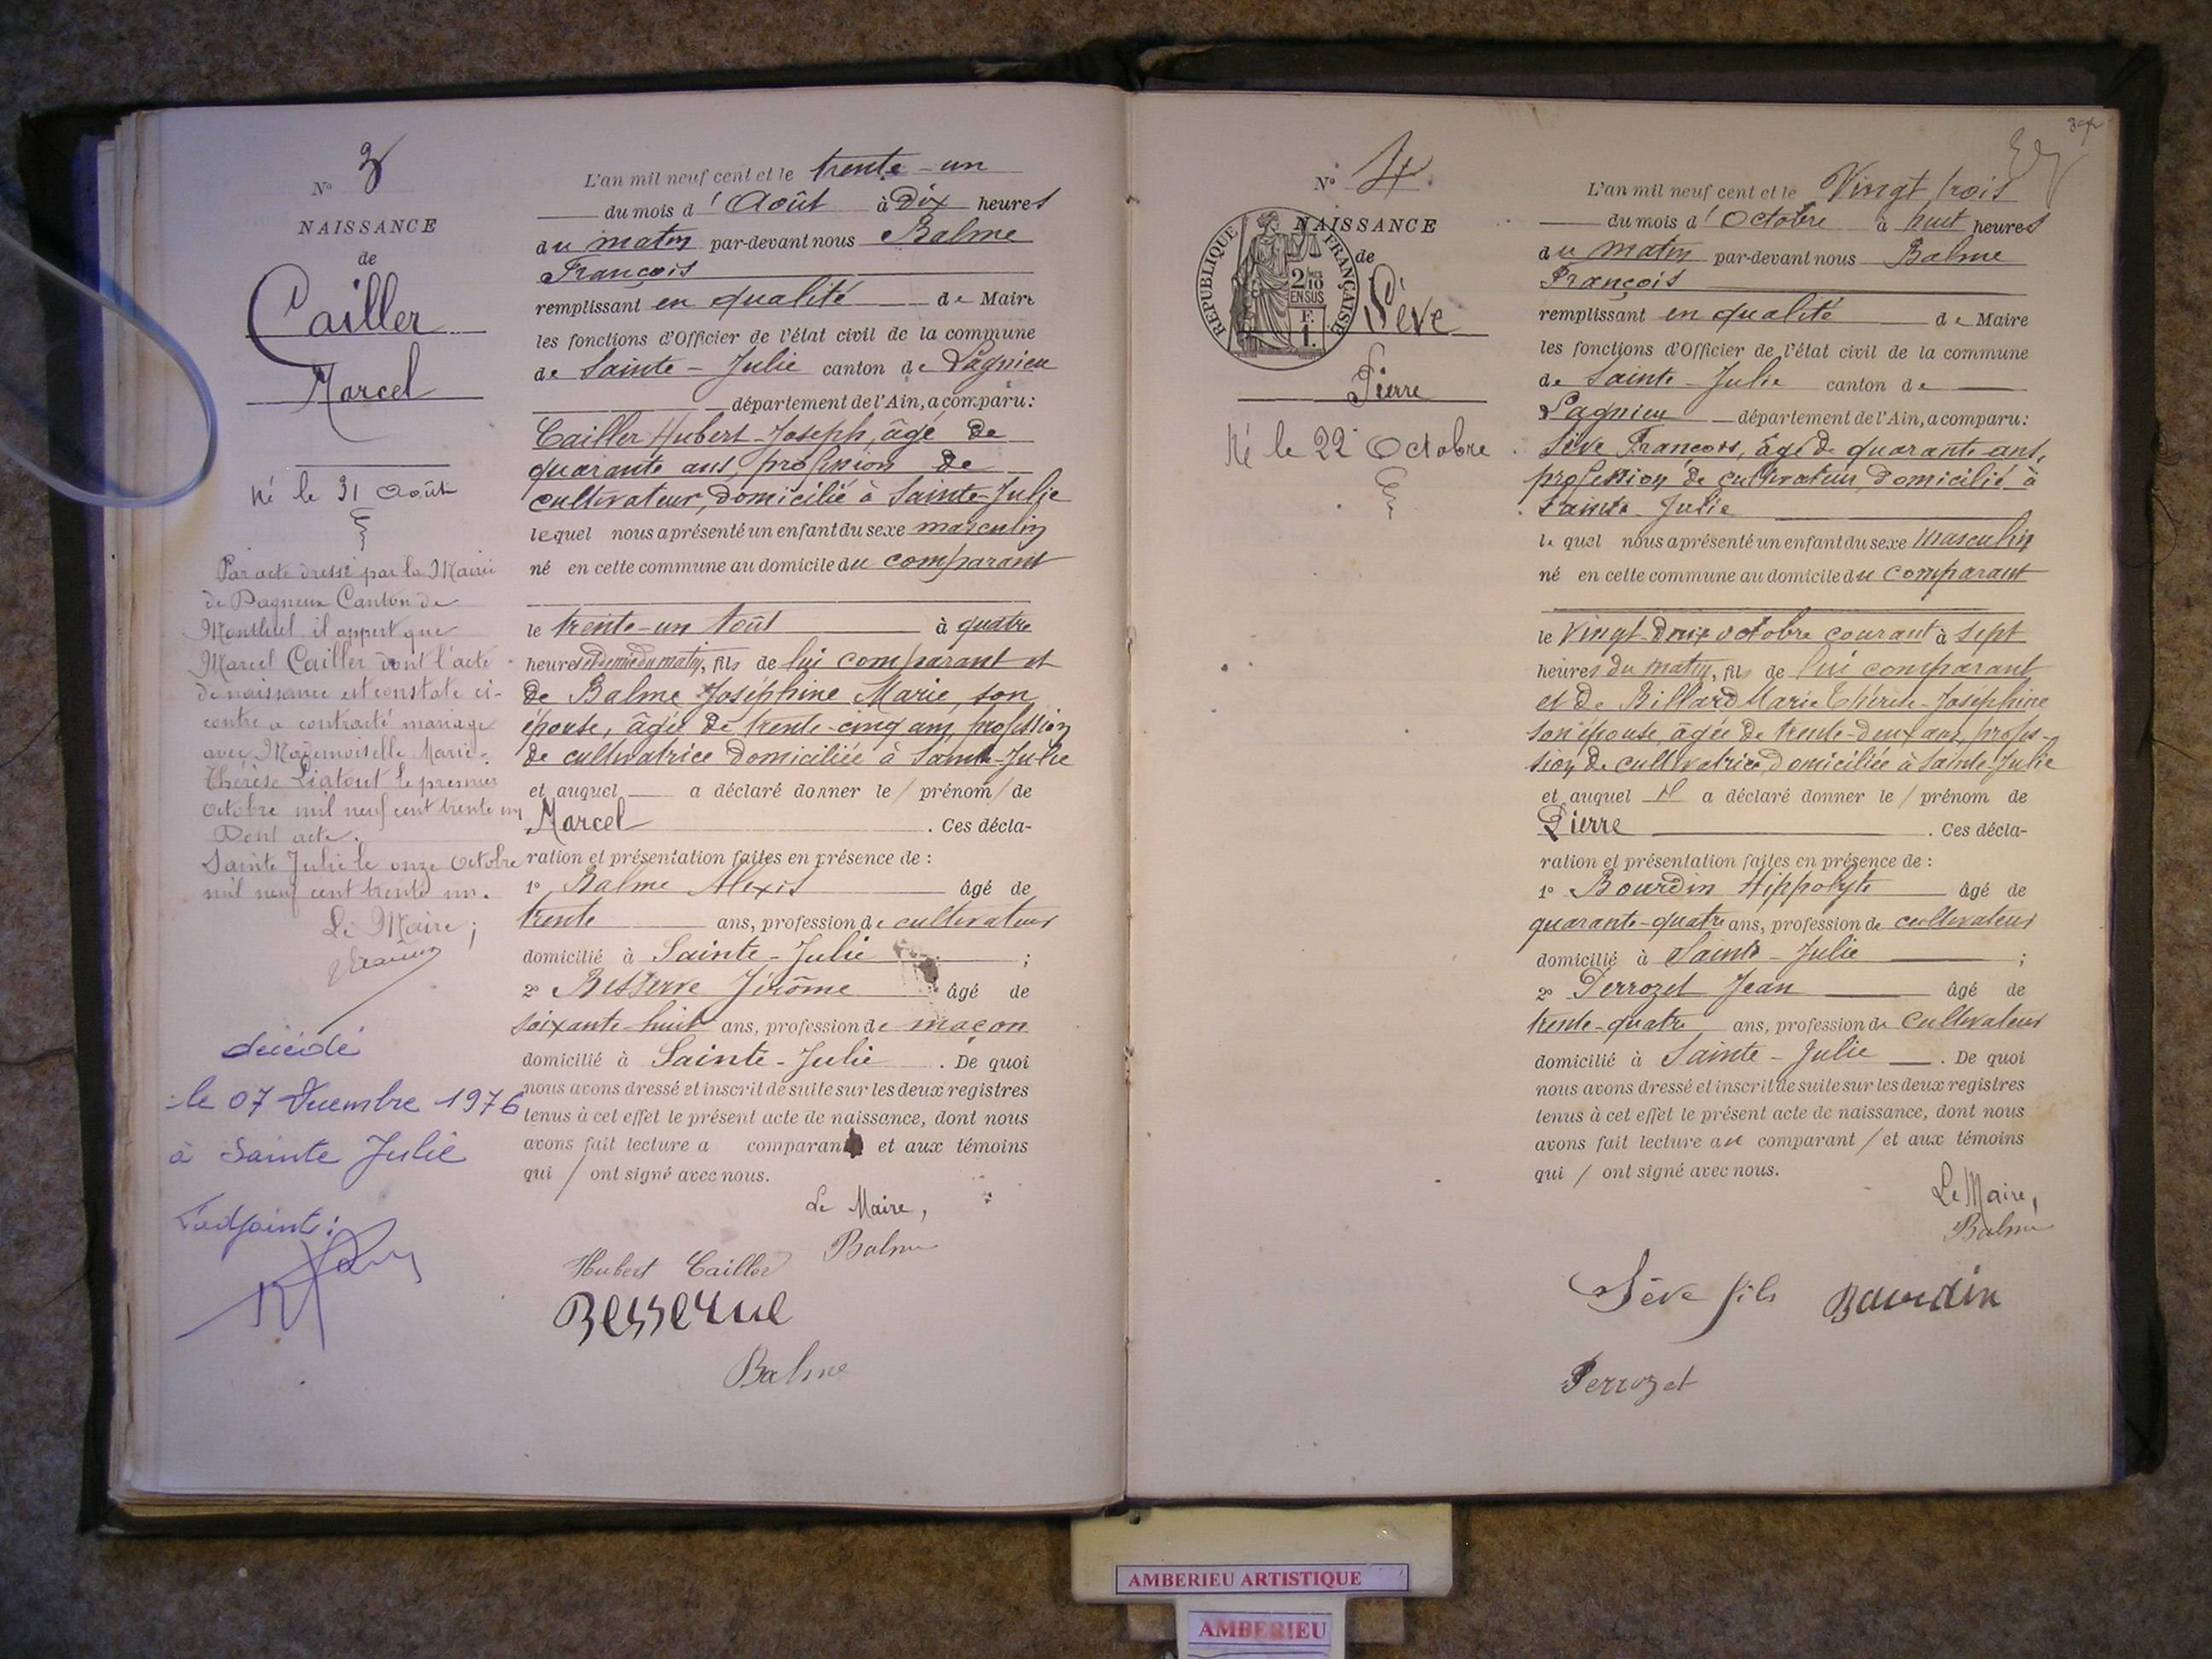 N° 3
NAISSANCE
de
Cailler
Marcel
Né le 31 Août
Par acte dressé par la Mairie
de Dagneux Canton de
Montluel il appert que
Marcel Cailler dont l'acte
de naissance est constaté ci-
contre a contracté mariage
avec Mademoiselle Marie-
Thérèse Liatout le premier
Octobre mil neuf cent trente un
Dont acte.
Sainte Julie le onze Octobre
mil neuf cent trente un.
Le Maire;
décédé
le 07 Décembre 1976
à Sainte Julie
L'adjoint:
L'an mil neuf cent et le trente-un
du mois d'Août à Dix heures
du matin par-devant nous Balme
François
remplissant en qualité de Maire
les fonctions d'Officier de l'état civil de la commune
de Sainte-Julie canton de Lagnieu
département de l'Ain, a comparu:
Cailler Hubert-Joseph, âgé de
quarante ans, profession de
cultivateur, domicilié à Sainte-Julie
lequel nous a présenté un enfant du sexe masculin
né en cette commune au domicile du comparant
le trente-un Août à quatre
heures et demie du matin, fils de lui comparant et
de Balme Joséphine Marie, son
épouse, âgée de trente-cinq ans, profession
de cultivatrice domiciliée à Sainte-Julie
et auquel a déclaré donner le / prénom / de
Marcel . Ces décla-
ration et présentation faites en présence de :
1° Balme Alexis âgé de
trente ans, profession de cultivateur
domicilié à Sainte-Julie ;
2° Besserve Jérôme âgé de
soixante-huit ans, profession de maçon
domicilié à Sainte-Julie . De quoi
nous avons dressé et inscrit de suite sur les deux registres
tenus à cet effet le présent acte de naissance, dont nous
avons fait lecture a comparant et aux témoins
qui / ont signé avec nous.
Le Maire,
Balme
Hubert Cailler
Besserve
Balme
N° 4
NAISSANCE
de
RÉPUBLIQUE FRANÇAISE
2/10
EN SUS
F.
1.
Sève
Pierre
Né le 22 Octobre
L'an mil neuf cent et le Vingt trois
du mois d'Octobre à huit heures
du matin par-devant nous Balme
François
remplissant en qualité de Maire
les fonctions d'Officier de l'état civil de la commune
de Sainte-Julie canton de
Lagnieu département de l'Ain, a comparu:
Sève François, âgé de quarante ans,
profession de cultivateur, domicilié à
Sainte-Julie
lequel nous a présenté un enfant du sexe masculin
né en cette commune au domicile du comparant
le Vingt-deux octobre courant à sept
heures du matin, fils de lui comparant
et de Billard Marie Thérèse-Joséphine
son épouse, âgée de trente-deux ans, profes-
sion de cultivatrice, domiciliée à Sainte-Julie
et auquel il a déclaré donner le / prénom de
Pierre . Ces décla-
ration et présentation faites en présence de :
1° Bourdin Hippolyte âgé de
quarante-quatre ans, profession de cultivateur
domicilié à Sainte-Julie ;
2° Perrozet Jean âgé de
trente-quatre ans, profession de cultivateur
domicilié à Sainte-Julie . De quoi
nous avons dressé et inscrit de suite sur les deux registres
tenus à cet effet le présent acte de naissance, dont nous
avons fait lecture au comparant / et aux témoins
qui / ont signé avec nous.
Le Maire,
Balme
Sève fils Bourdin
Perrozet
AMBERIEU ARTISTIQUE
AMBERIEU